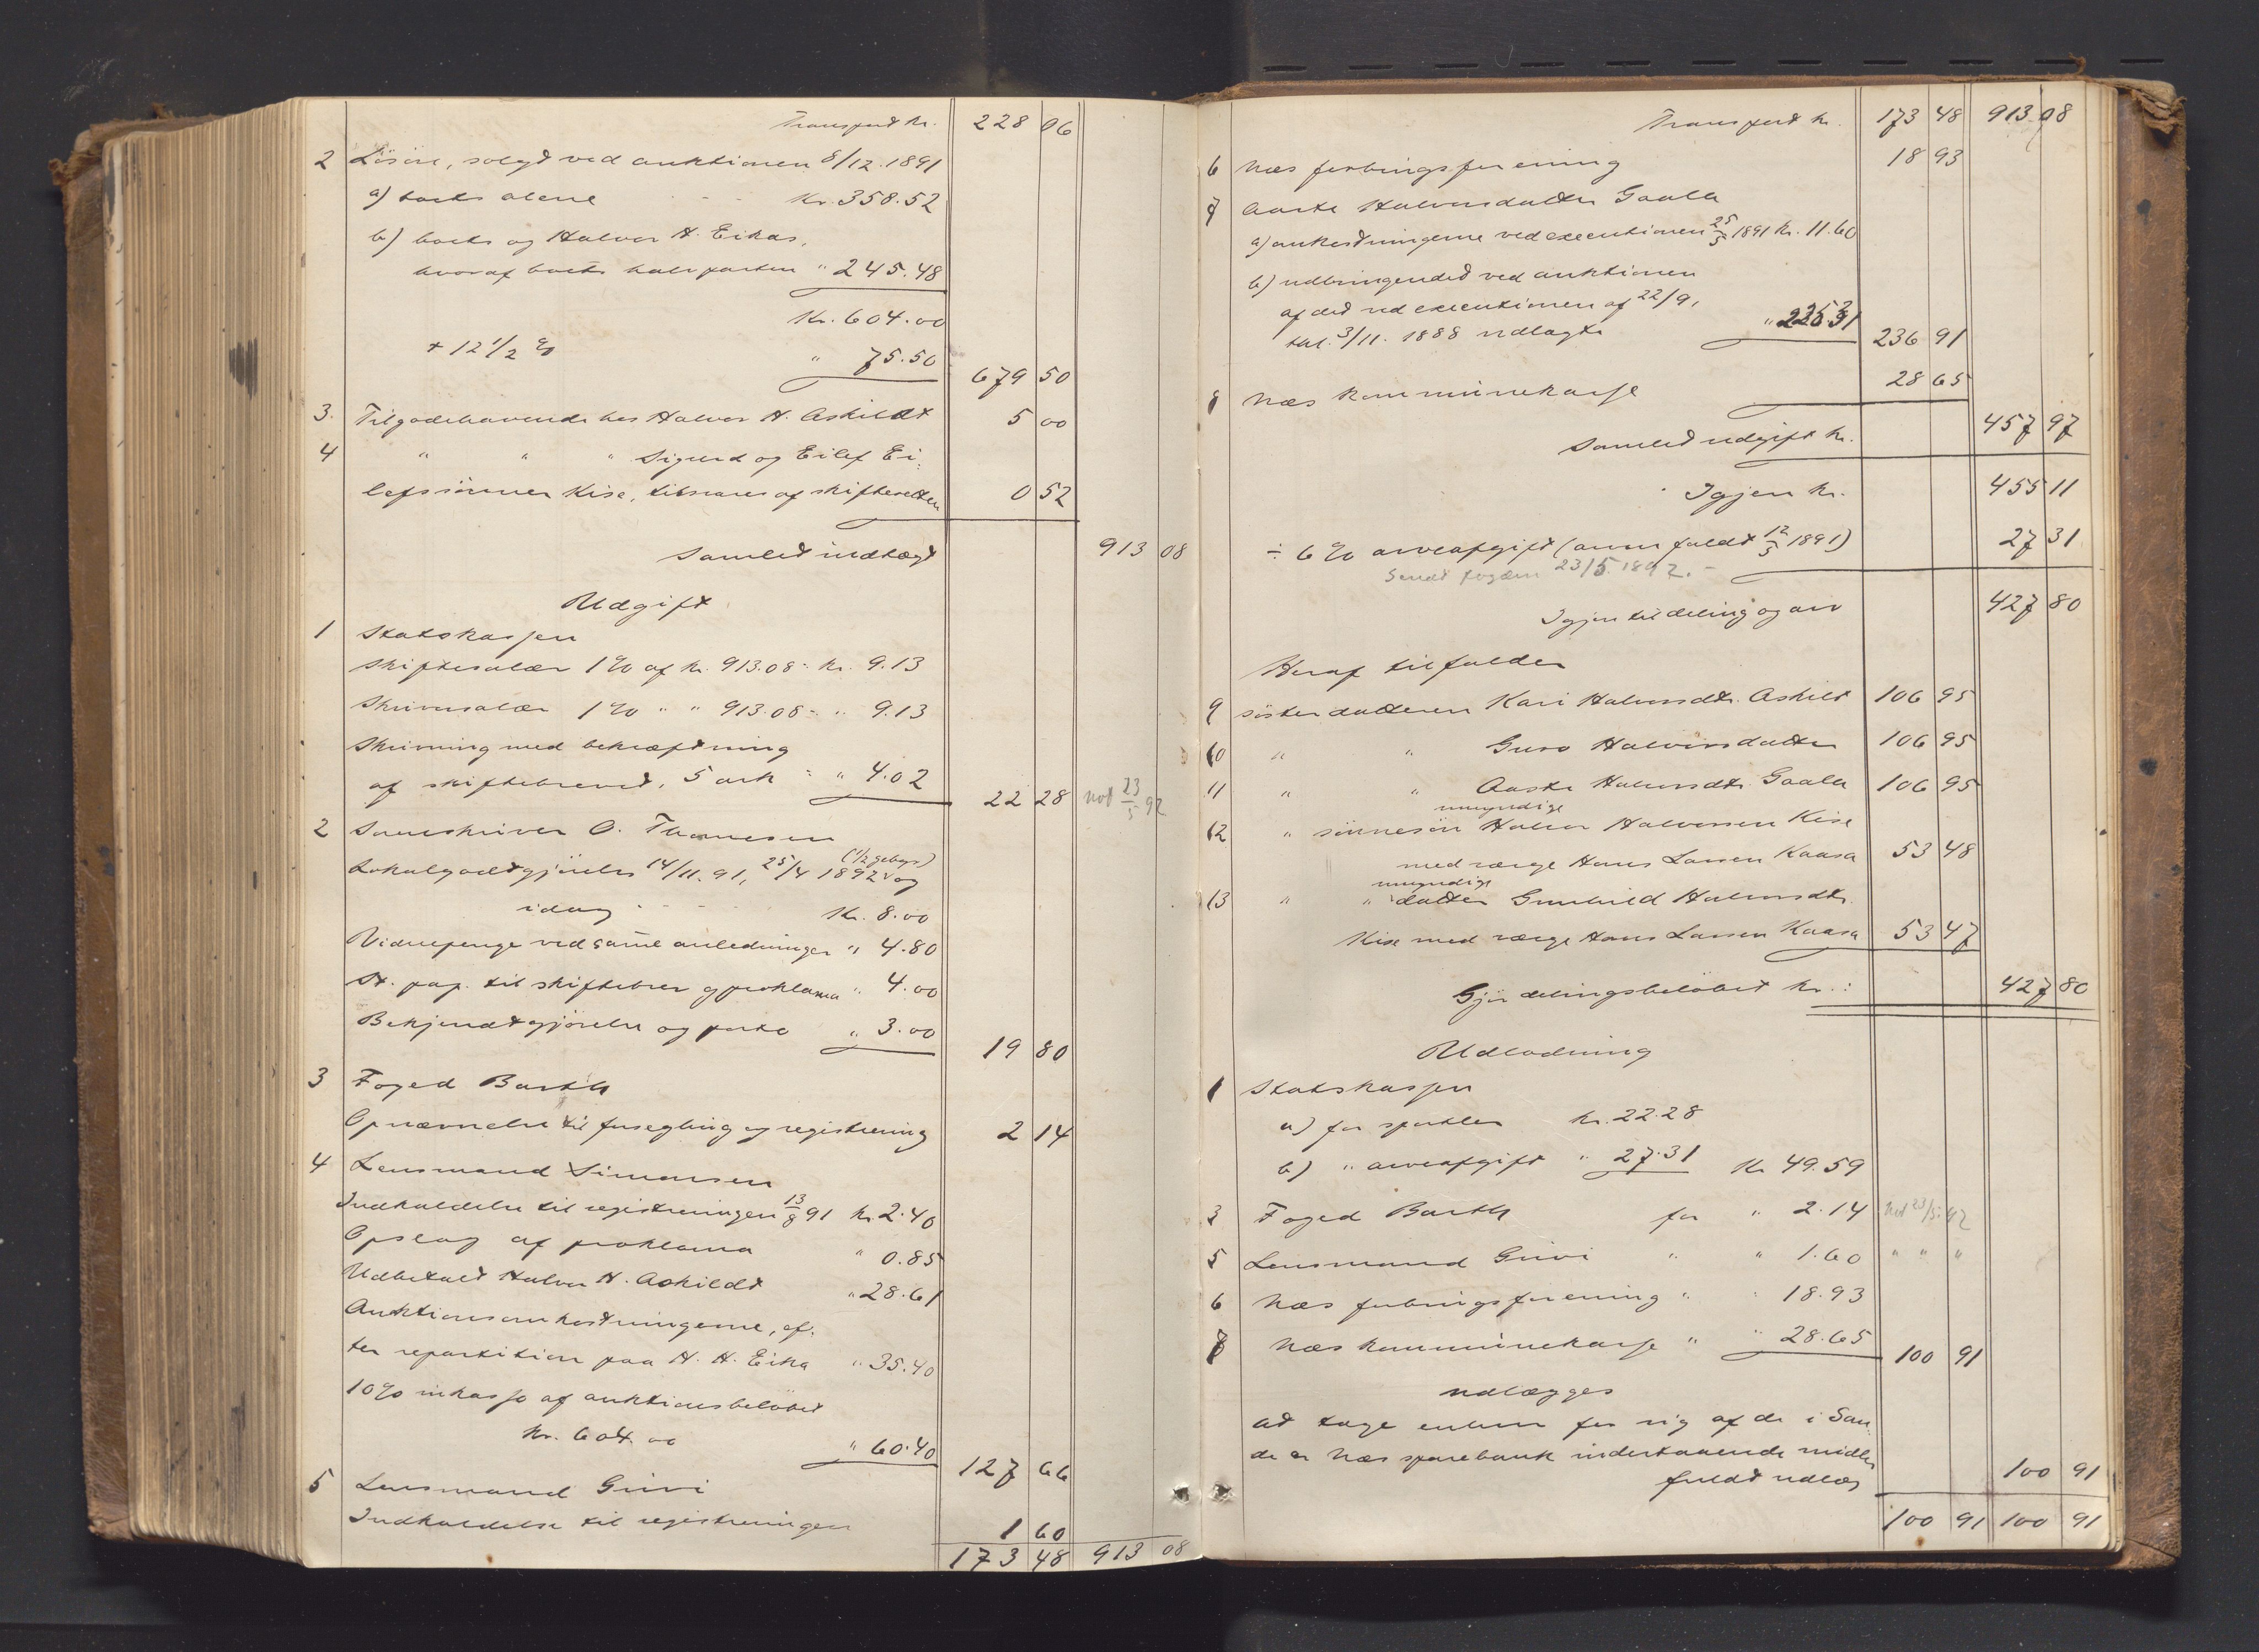 Transport kr. 228 06
2 Løsøre, solgd ved auktionen 8/12. 1891
a) boets alene kr. 358.52
b) boets og Halvor H. Eikas,
hvoraf boets halvparten " 245.48
Kr. 604.00
+ 12 1/2 % " 75.50 679 50
3. Tilgodehavende hos Halvor H. Askildt 5 00
4 " " " Sigurd og Eilef Ei-
lefssønner Kise, tilsvares af skifteretten 0 52
Samled indtægt 913 08
Udgift
1 Statskassen
Skiftesalær 1% af kr. 913.08 = kr. 9.13
Skriversalær 1% " " 913.08 = " 9.13
Skrivning med bekræftning
af skiftebrevet, 5 ark = " 4.02 22 28 not 23/5 92
2 Sorenskriver O. Thomesen
Lokalgodtgjørelse 14/11. 91, 25/4 1892 (1/2 gebyr) og
idag kr. 8.00
Vidnepenge ved samme anledninger " 4.80
St. pap. til skiftebrev og proklama " 4.00
Bekjendtgjørelse og porto " 3.00 19 80
3 Foged Barth
Opnævnelse til forsegling og registrering 2 14
4 Lensmand Simonsen
Indkaldelse til registreringen 13/8 91 kr. 2.40
Opslag af proklama " 0.85
Udbetalt Halvor H. Askildt " 28.61
Auktionsomkostningerne, ef-
ter repartition paa H. H. Eika " 35.40
10% inkasso af auktionsbeløbet
kr. 604.00 " 60.40 127 66
5 Lensmand Grivi
Indkaldelse til registreringen 1 60
173 48 913 08
Transport kr. 173 48 913 08
6 Næs forbrugsforening 18 93
7 Aaste Halvorsdatter Gaala
a) omkostningerne ved executionen 25/5 1891 kr. 11.60
b) udbringendet ved auktionen
af det ved executionen af 22/9,
3/11. 1888 udlagte " 225.31 236 91
8 Næs kommunekasse 28 65
Samled udgift kr. 457 97
Igjen kr. 455 11
÷ 6% arveafgift (arven faldt 12/5 1891) 27 31
Sendt fogden 23/5. 1892.
Igjen til deling og arv 427 80
Heraf tilfalder
9 søsterdatteren Kari Halvorsdtr. Askilt 106 95
10 " " Guro Halvorsdatter 106 95
11 " " Aaste Halvorsdtr. Gaala 106 95
12 " umyndige sønnesøn Halvor Halvorsen Kise
med værge Hans Larsen Kaasa 53 48
13 " " umyndige datter Gunhild Halvorsdtr.
Kise med værge Hans Larsen Kaasa 53 47
Gjør delingsbeløbet kr.: 427 80
Udlodning
1 Statskassen
a) for sportler kr. 22.28
b) " arveafgift " 27.31 Kr 49.59
3 Foged Barth for " 2.14 not 23/5. 92
5 Lensmand Grivi " " 1.60 " " "
6 Næs forbrugsforening " " 18.93
8 Næs kommunekasse " " 28.65 100 91
udlægges
at tage enhver for sig af de i Sau-
de og Næs sparebank indestaaende midler 100 91
fuldt udlæg
100 91 100 91